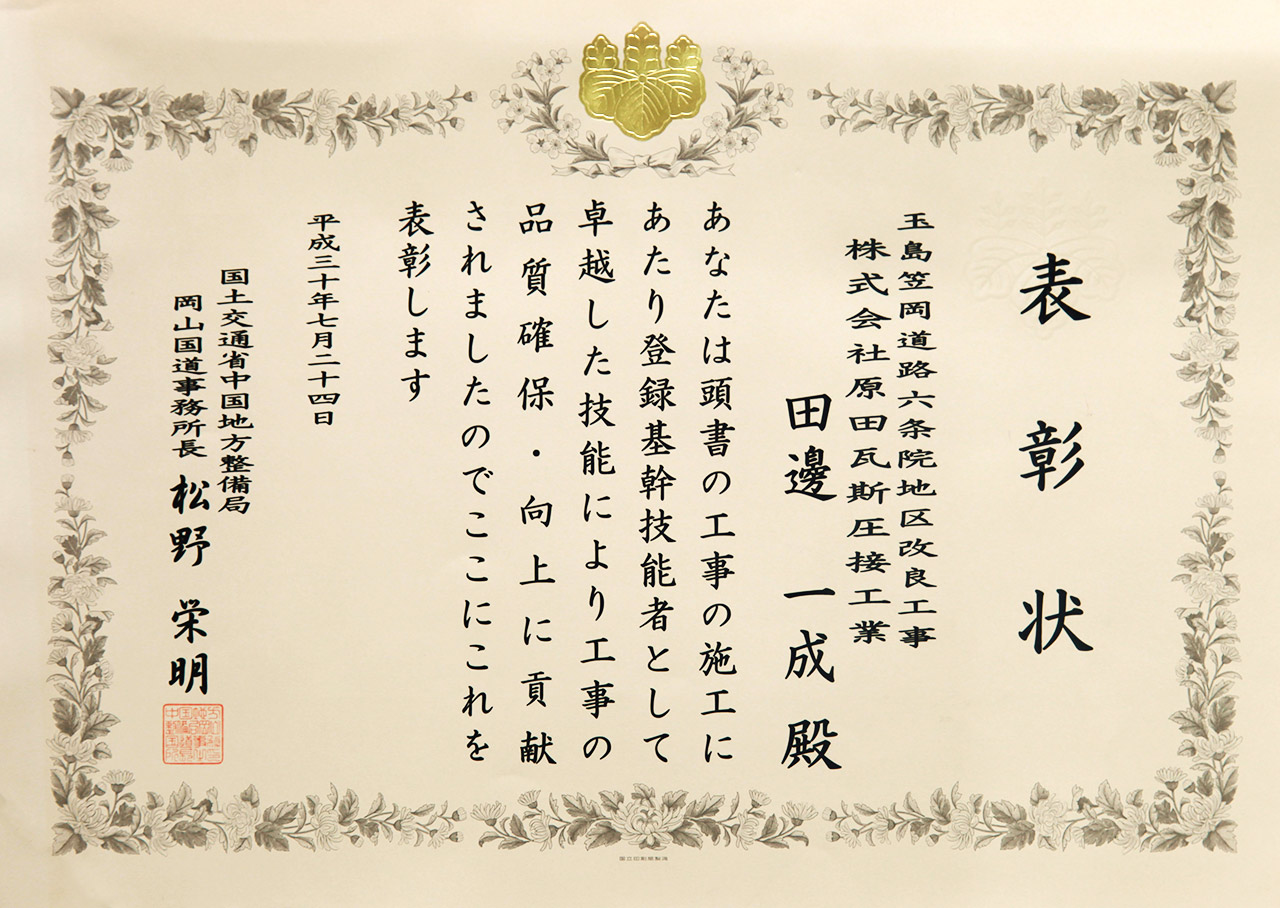 表彰状
玉島笠岡道路六条院地区改良工事
株式会社原田瓦斯圧接工業
田邊 一成 殿
あなたは頭書の工事の施工に
あたり登録基幹技能者として
卓越した技能により工事の
品質確保・向上に貢献
されましたのでここにこれを
表彰します
平成三十年七月二十四日
国土交通省中国地方整備局
岡山国道事務所長 松野 栄明
国立印刷局製造